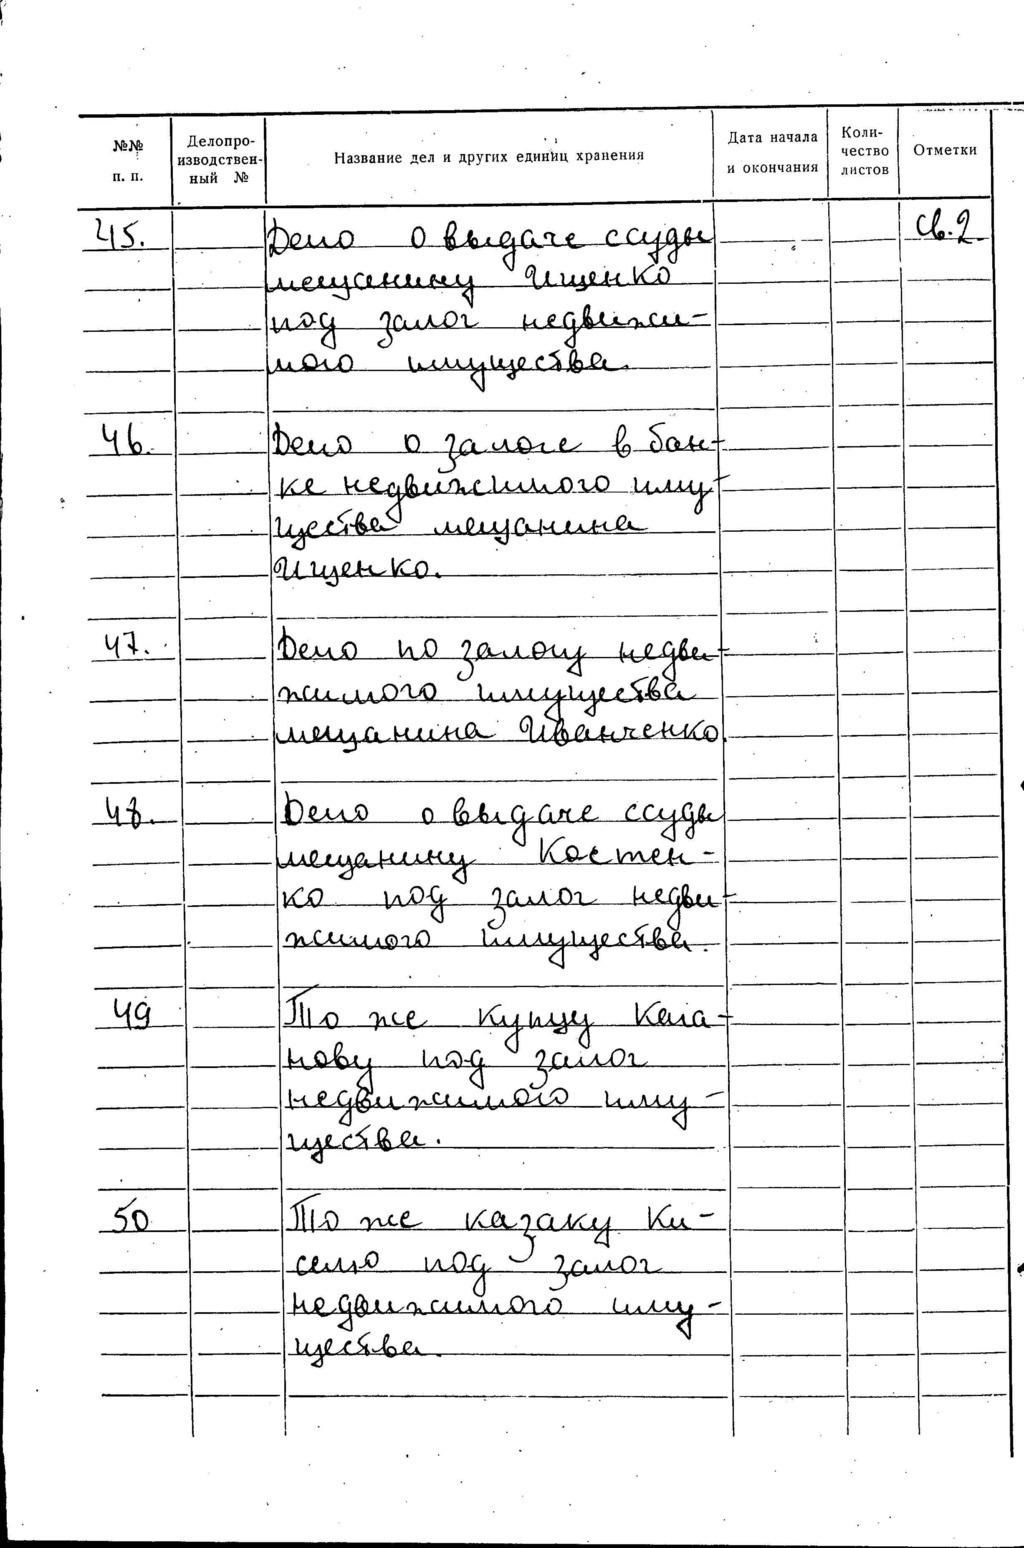 №№ п. п.
Делопроизводственный №
Название дел и других единиц хранения
Дата начала и окончания
Количество листов
Отметки
45. Дело о выдаче ссуды св.2
мещанину Ищенко
под залог недвижи-
мого имущества.
46. Дело о залоге в бан-
ке недвижимого иму-
щества мещанина
Ищенко.
47. Дело по залогу недви-
жимого имущества
мещанина Иванченко.
48. Дело о выдаче ссуды
мещанину Костен-
ко под залог недви-
жимого имущества.
49 То же купцу Кала-
нову под залог
недвижимого иму-
щества.
50 То же казаку Ки-
селю под залог
недвижимого иму-
щества.